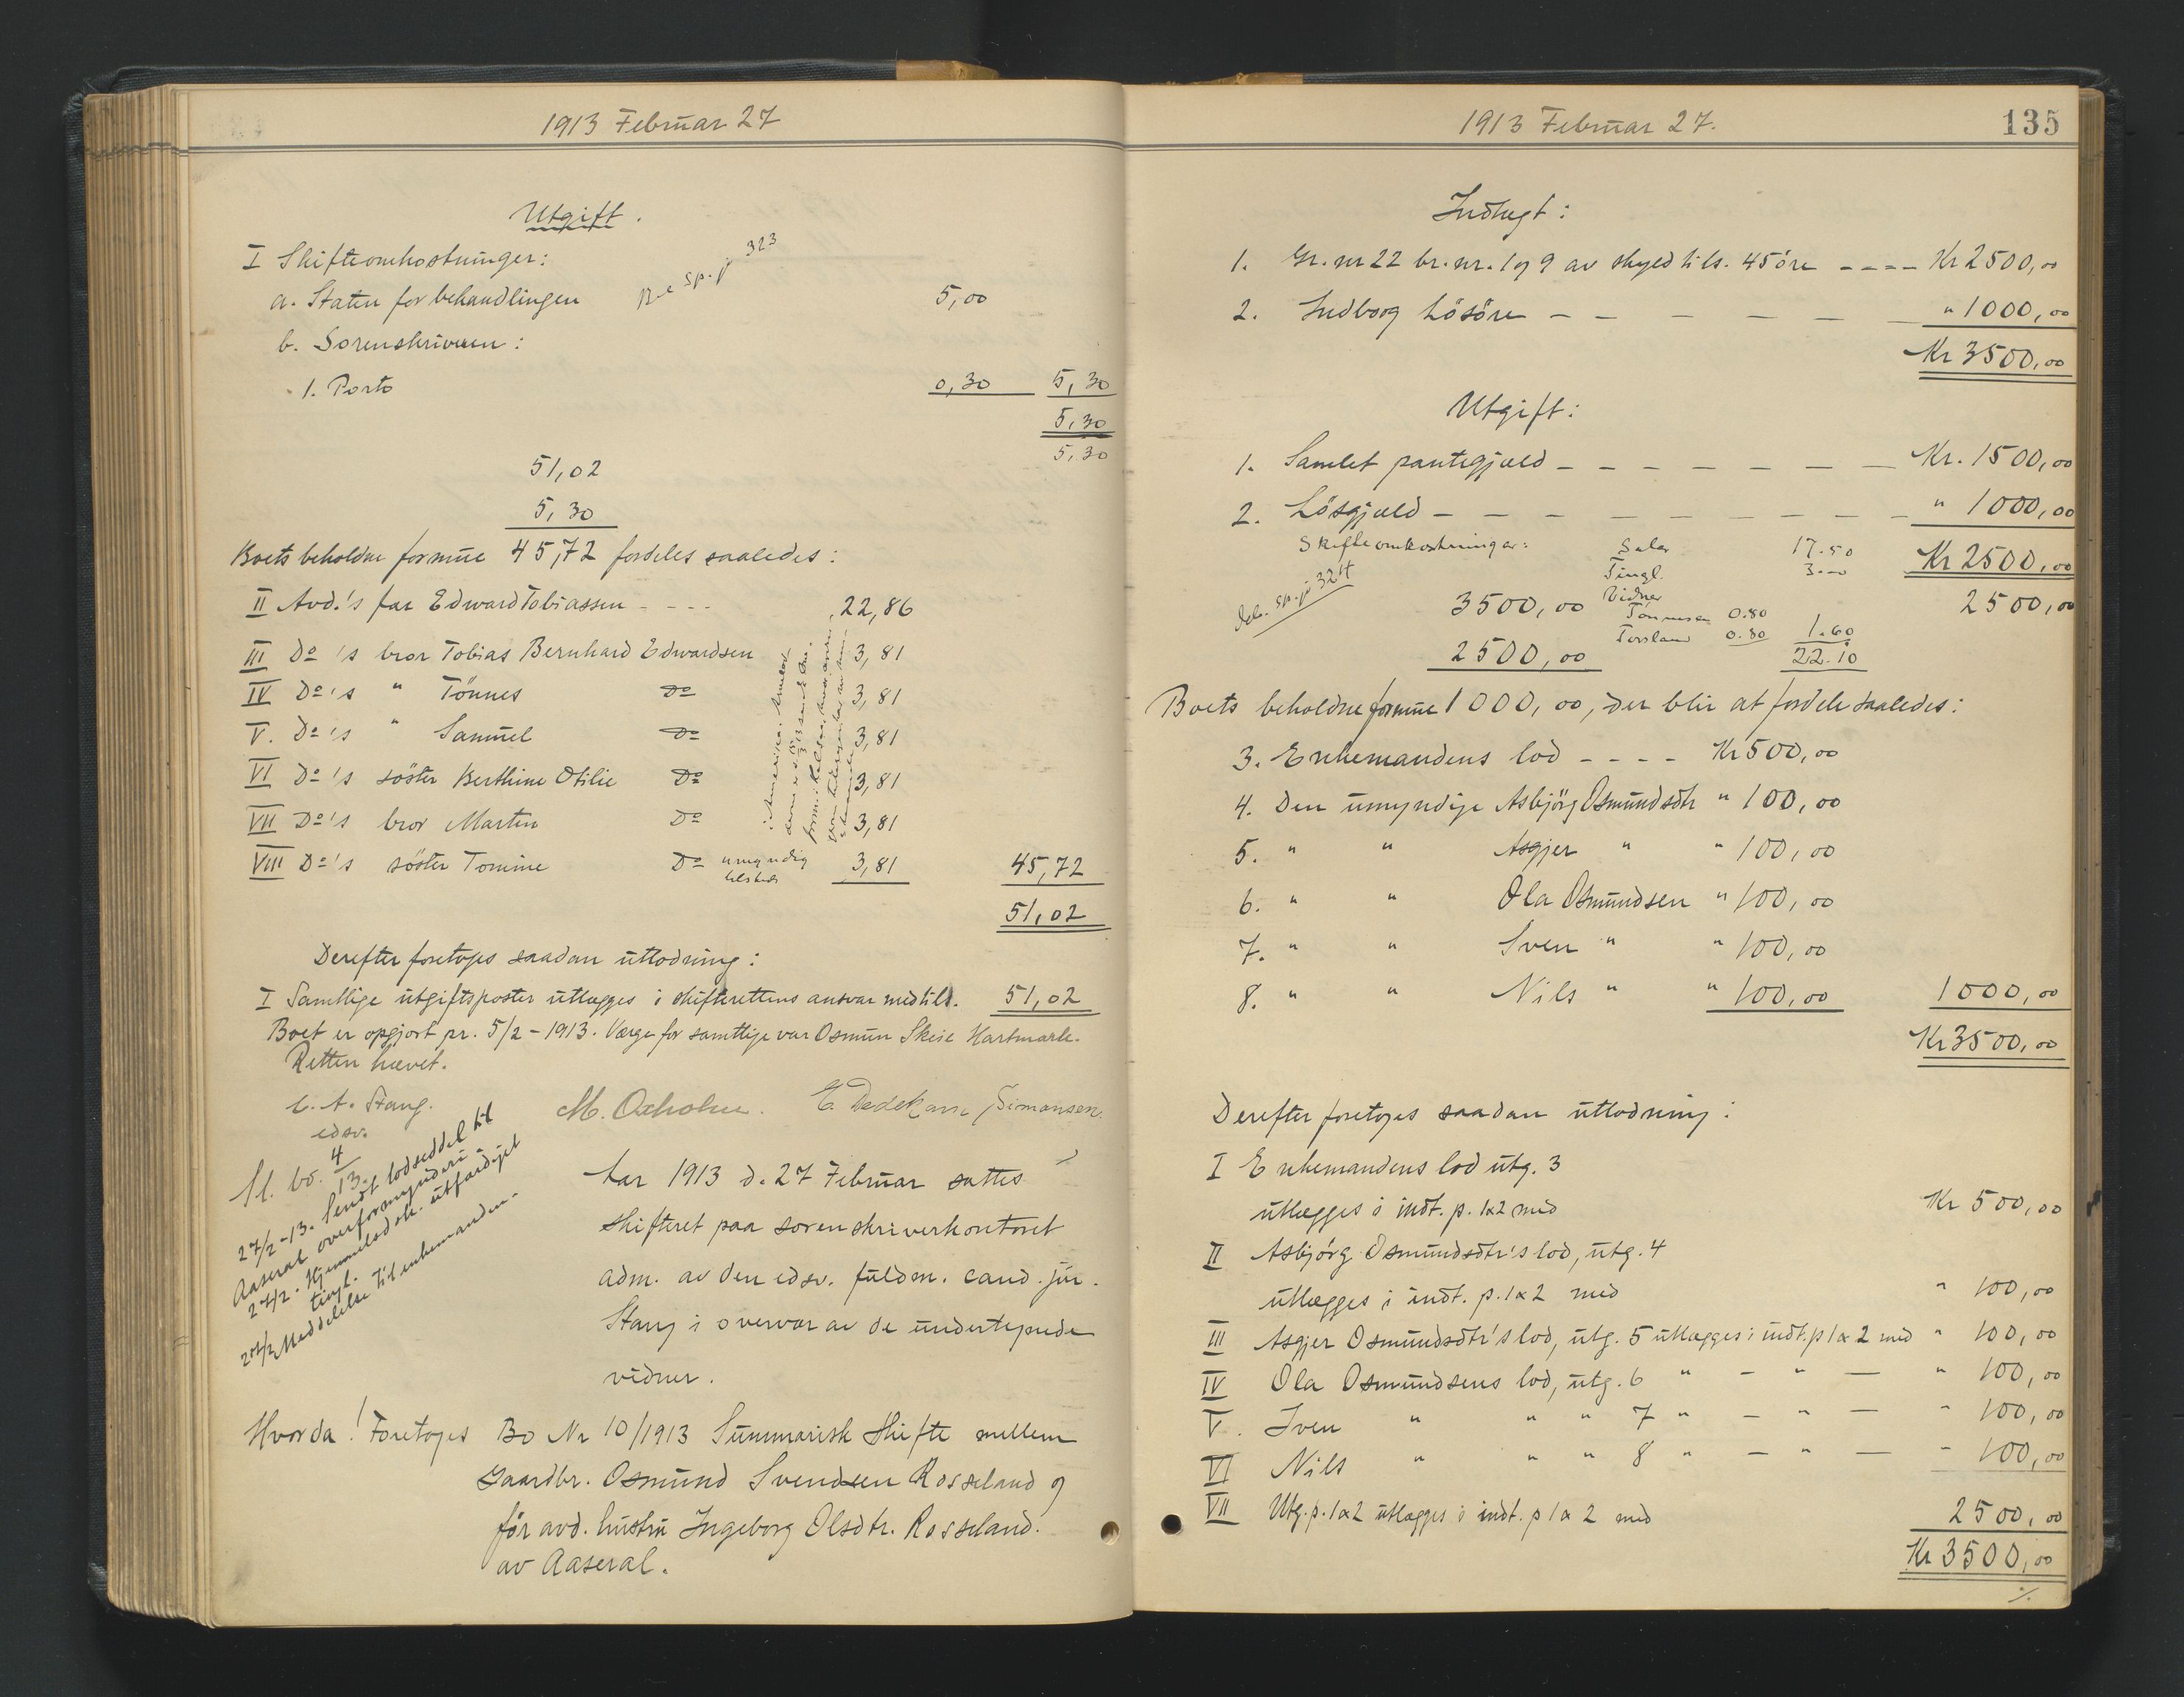 1913 Februar 27
Utgift.
I Skifteomkostninger:
a. Staten for behandlingen 5,00
sp. j 323
b. Sorenskriveren:
1. Porto 0,30 5,30
5,30
5,30
51,02
5,30
Boets beholdne formue 45,72 fordeles saaledes:
II Avd.'s far Edward Tobiassen - - - - 22,86
III Do 's bror Tobias Bernhard Edwardsen 3,81
IV Do's " Tönnes Do 3,81
V. Do's " Samuel Do 3,81
VI Do's söster Berthine Otilie Do 3,81
VII Do's bror Martin Do 3,81
VIII Do's söster Tomine Do umyndig tilstede 3,81 45,72
i Amerika
51,02
Derefter foretoges saadan utlodning:
I Samtlige utgiftsposter utlægges i skifterettens ansvar med tils. 51,02
Boet er opgjort pr. 5/2 - 1913. Værge for samtlige var Osmun Skeie Hartmark.
Retten hævet.
C. A. Stang.
edsv.
M. Oxholm. E. Dedekam Simonsen.
Sl. bo. 4/13.
27/2-13. Sendt lodseddel til
Aaseral overformynderi.
27/2. Hjemmelsdok. utfærdiget
tingl.
27/2 Meddelelse til enkemanden.
Aar 1913 d. 27 Februar sattes
skifteret paa sorenskriverkontoret
adm. av den edsv. fuldm. cand. jur.
Stang i overvær av de undertegnede
vidner.
Hvorda! Foretoges Bo Nr 10/1913 Summarisk skifte mellem
gaardbr. Osmund Svendsen Rosseland og
før avd. hustru Ingeborg Olsdtr. Rosseland.
av Aaseral.
1913 Februar 27.
135
Indtægt:
1. Gr. nr 22 br. nr. 1 og 9 av skyld tils. 45 öre - - - - Kr 2500,00
2. Indborg Lösöre - - - - - - " 1000,00
Kr 3500,00
Utgift:
1. Samlet pantegjæld - - - - - - - Kr. 1500,00
2. Lösgjæld - - - - - - - - - " 1000,00
Skifteomkostninger: Salær 17.50 Kr 2500,00
sp. j 324
Tingl. 3.00
3500,00 Vidner 2500,00
Tönnessen 0.80
Torsland 0.80 1.60
2500,00 22.10
Boets beholdne formue 1000,00, der blir at fordele saaledes:
3. Enkemandens lod - - - - Kr 500,00
4. Den umyndige Asbjörg Osmundsdtr " 100,00
5. " " Asgjer " " 100,00
6. " " Ola Osmundsen " 100,00
7. " " Sven " " 100,00
8. " " Nils " " 100,00 1000,00
Kr 3500,00
Derefter foretoges saadan utlodning:
I Enkemandens lod utg. 3
utlægges i indt. p. 1&2 med Kr 500,00
II Asbjörg Osmundsdtr's lod, utg. 4
utlægges i indt. p. 1&2 med " 100,00
III Asgjer Osmundsdtr's lod, utg. 5 utlægges i indt. p 1&2 med " 100,00
IV Ola Osmundsens lod, utg. 6 " - " - " 100,00
V. Sven " " " 7 " - " - " 100,00
VI Nils " " " 8 " - " - " 100,00
VII Utg. p. 1&2 utlægges i indt. p 1&2 med 2500,00
Kr 3500,00